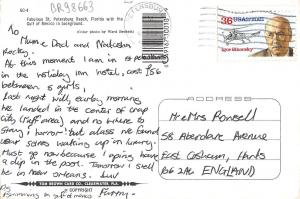 GO-4
BR98663
Fabulous St. Petersburg Beach, Florida with the Gulf of Mexico in background.
(Color photo by Ward Beckett)
To
Mum & Dad and
At this moment I am in
in the holiday inn hotel, cost $56
between 5 girls,
Last night well, early morning
We landed in the center of crap
city (raff area) and no where to
stay, horror! but alas we found
our selves waking up in luxury.
Must go now because I going have
a dip in the pool. Tomorrow I shall
be in new orleans. luv
P.S
Swimming in gulf of mexico
TOM BROWN CARD CO., CLEARWATER, FLA.
© COPYRIGHT
36 USAirmail
Igor Sikorsky
ADDRESS
Mr & Mrs
58 Aberdare Avenue
East Cosham, Hants
PO6 2AL ENGLAND